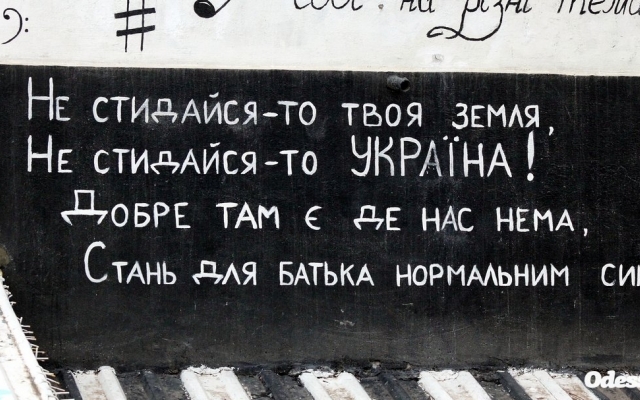 на різні
Не стидайся-то твоя земля,
Не стидайся-то УКРАЇНА!
Добре там є де нас нема,
Стань для батька нормальним